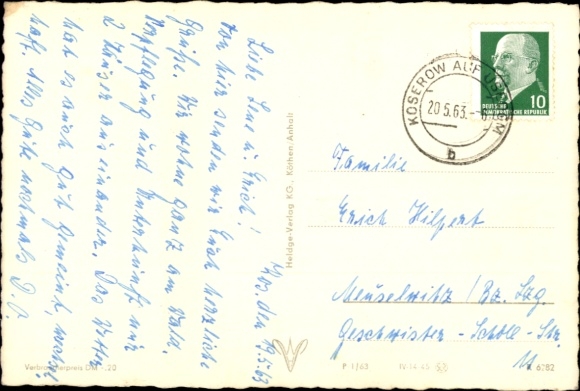 Ko., den 19.5.63
Liebe Lene u. Erich!
Von hier senden wir Euch herzliche
Grüße. Wir wohnen ganz am Wald.
Verpflegung und Unterkunft nur
2 Häuser auseinander. Das Wetter
hat es auch gut gemeint,
haft. Alles Gute nochmals
Verbraucherpreis DM -.20
Heldge-Verlag KG., Köthen-Anhalt
KOSEROW AUF USEDOM
20.5.63.
b
DEUTSCHE
DEMOKRATISCHE REPUBLIK
10
Familie
Erich Hilpert
Meuselwitz / Bz. Lpg.
Geschwister-Scholl-Str.
11
P 1/63 IV-14-45
K 6782